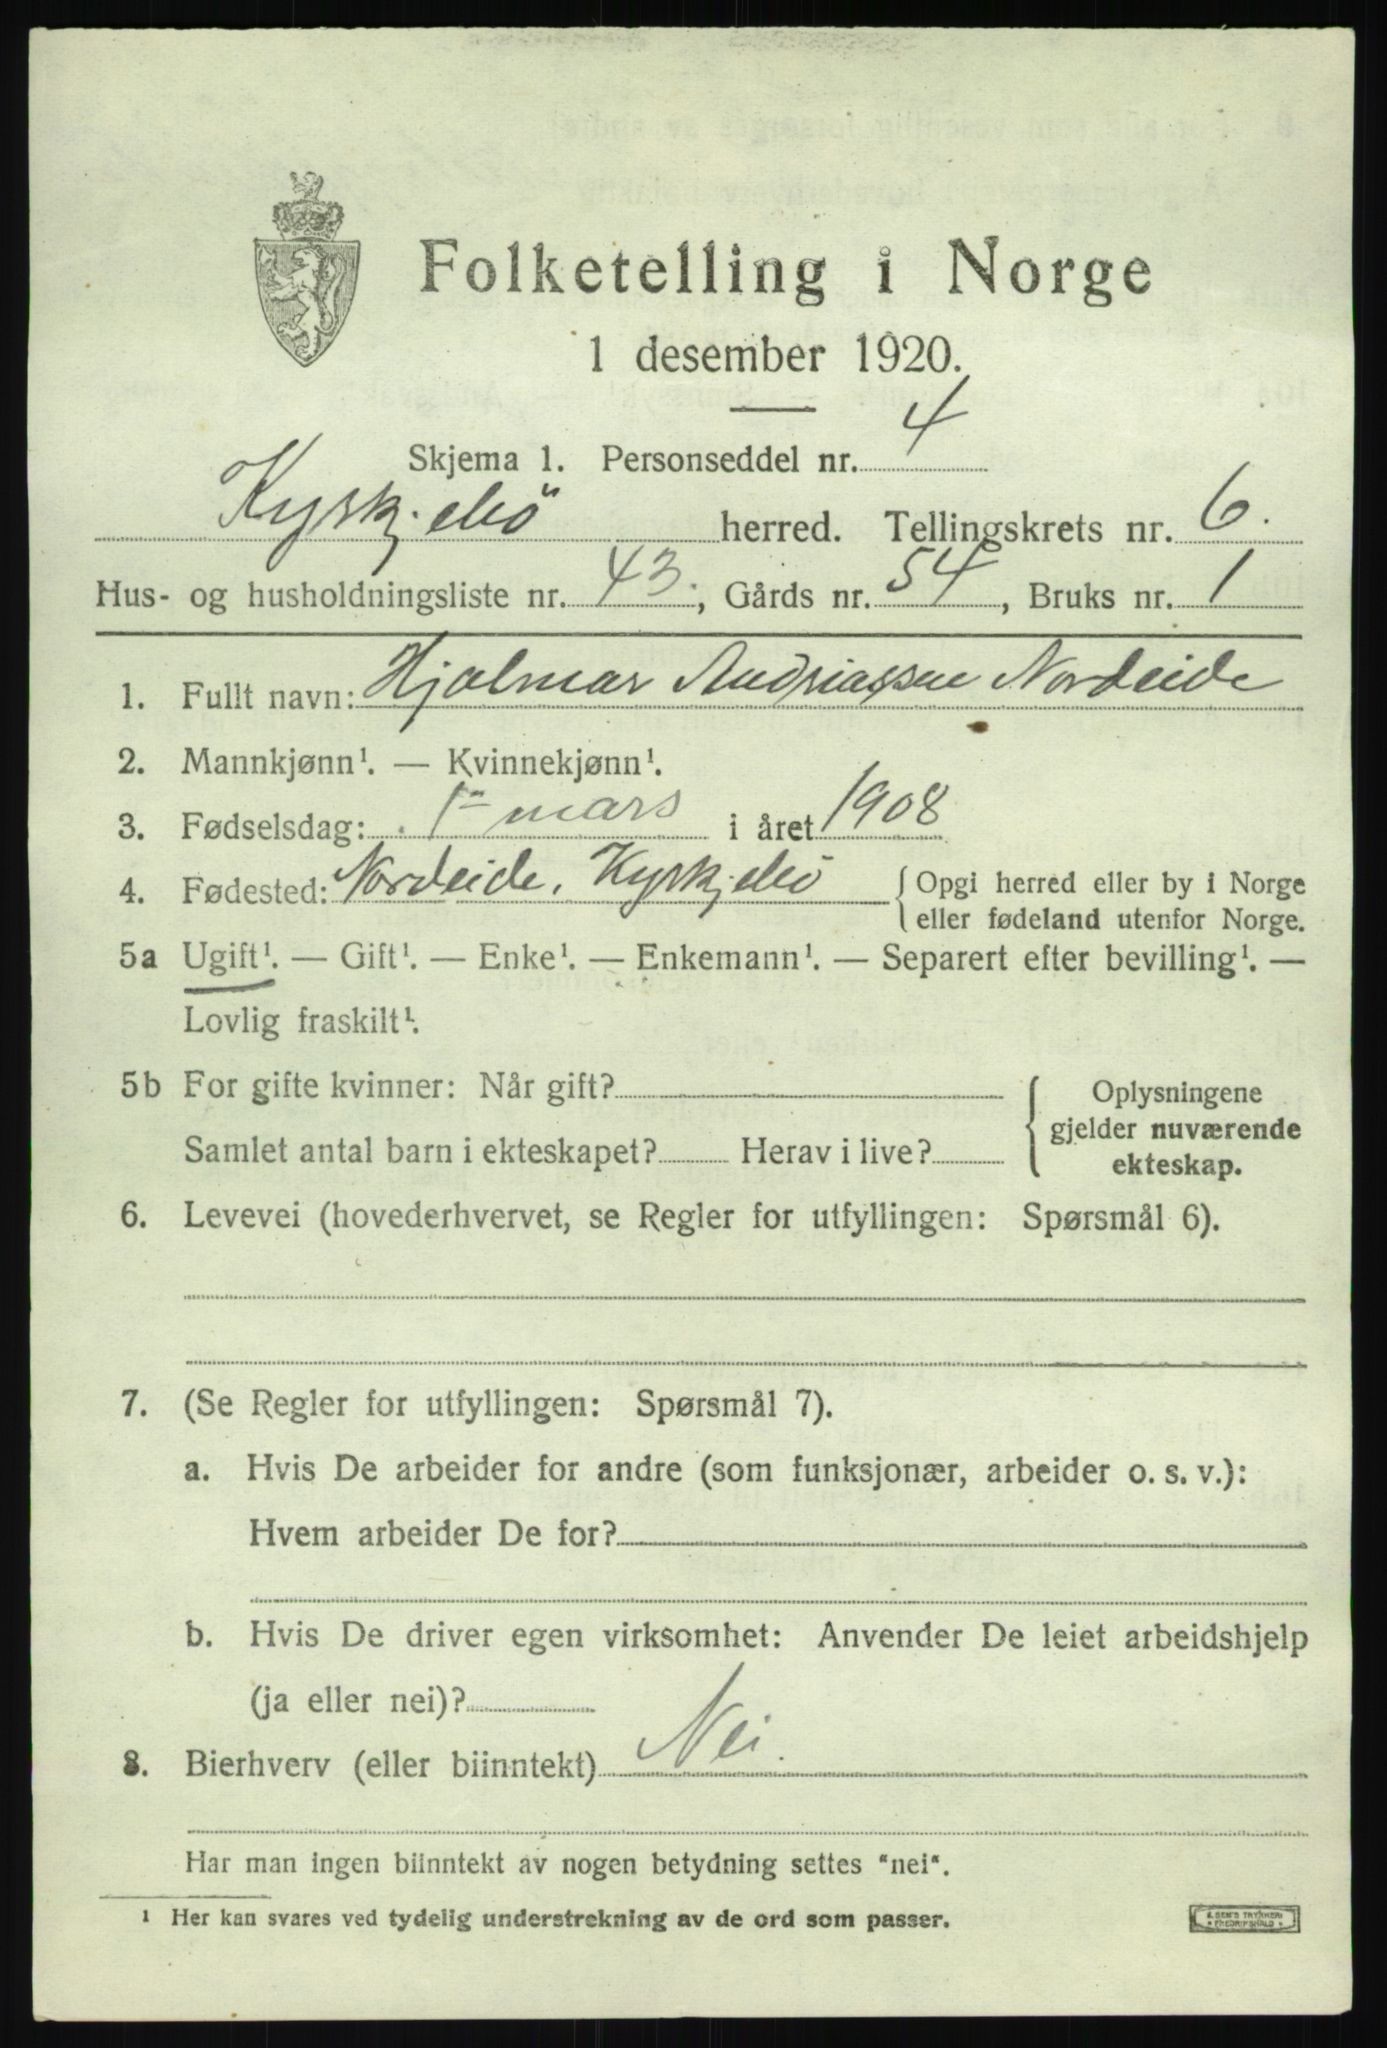 Folketelling i Norge
1 desember 1920.
Skjema 1. Personseddel nr. 4
Kyrkjebö herred. Tellingskrets nr. 6.
Hus- og husholdningsliste nr. 43., Gårds nr. 54, Bruks nr. 1
1. Fullt navn: Hjalmar Andriassen Nordeide
2. Mannkjønn¹. — Kvinnekjønn¹.
3. Fødselsdag: 1ˢᵗᵉ mars i året 1908
4. Fødested: Nordeide, Kyrkjebö { Opgi herred eller by i Norge
eller fødeland utenfor Norge.
5a Ugift¹. — Gift¹. — Enke¹. — Enkemann¹. — Separert efter bevilling¹. —
Lovlig fraskilt¹.
5b For gifte kvinner: Når gift? { Oplysningene
gjelder nuværende
Samlet antal barn i ekteskapet? Herav i live? ekteskap.
6. Levevei (hovederhvervet, se Regler for utfyllingen: Spørsmål 6).
7. (Se Regler for utfyllingen: Spørsmål 7).
a. Hvis De arbeider for andre (som funksjonær, arbeider o. s. v.):
Hvem arbeider De for?
b. Hvis De driver egen virksomhet: Anvender De leiet arbeidshjelp
(ja eller nei)?
8. Bierhverv (eller biinntekt) Nei.
Har man ingen biinntekt av nogen betydning settes "nei".
¹ Her kan svares ved tydelig understrekning av de ord som passer.